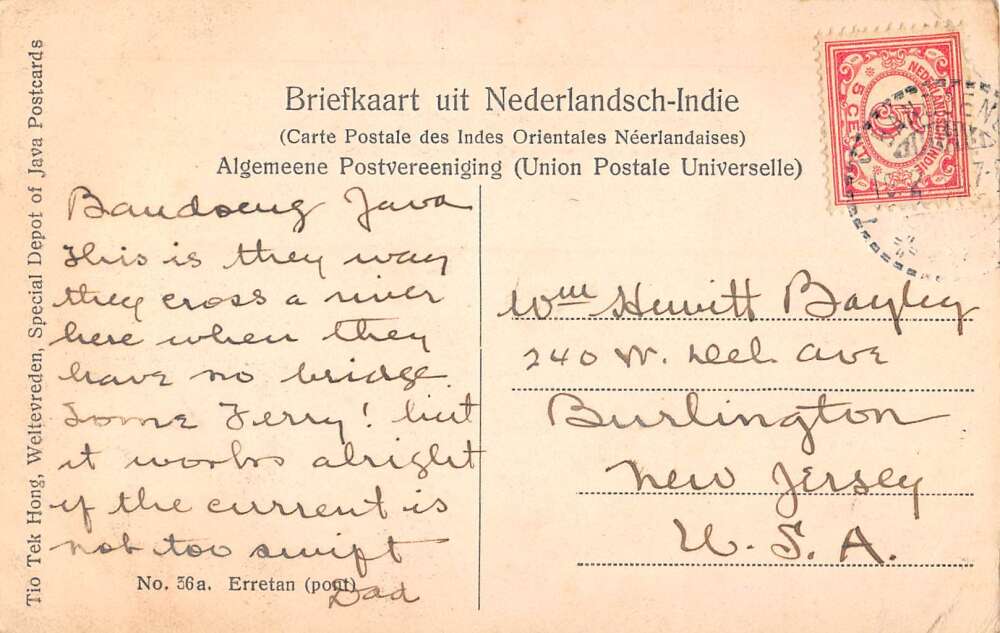 Tio Tek Hong, Weltevreden, Special Depot of Java Postcards
Briefkaart uit Nederlandsch-Indie
(Carte Postale des Indes Orientales Néerlandaises)
Algemeene Postvereeniging (Union Postale Universelle)
NEDERLANDSCH-INDIE
5 CENT
Bandoeng Java
This is they way
they cross a river
here when they
have no bridge.
Some Ferry! but
it works alright
if the current is
not too swift
Dad
No. 36a. Erretan (pont)
Wm Hewitt Bayley
240 W. Del. Ave
Burlington
New Jersey
U.S.A.